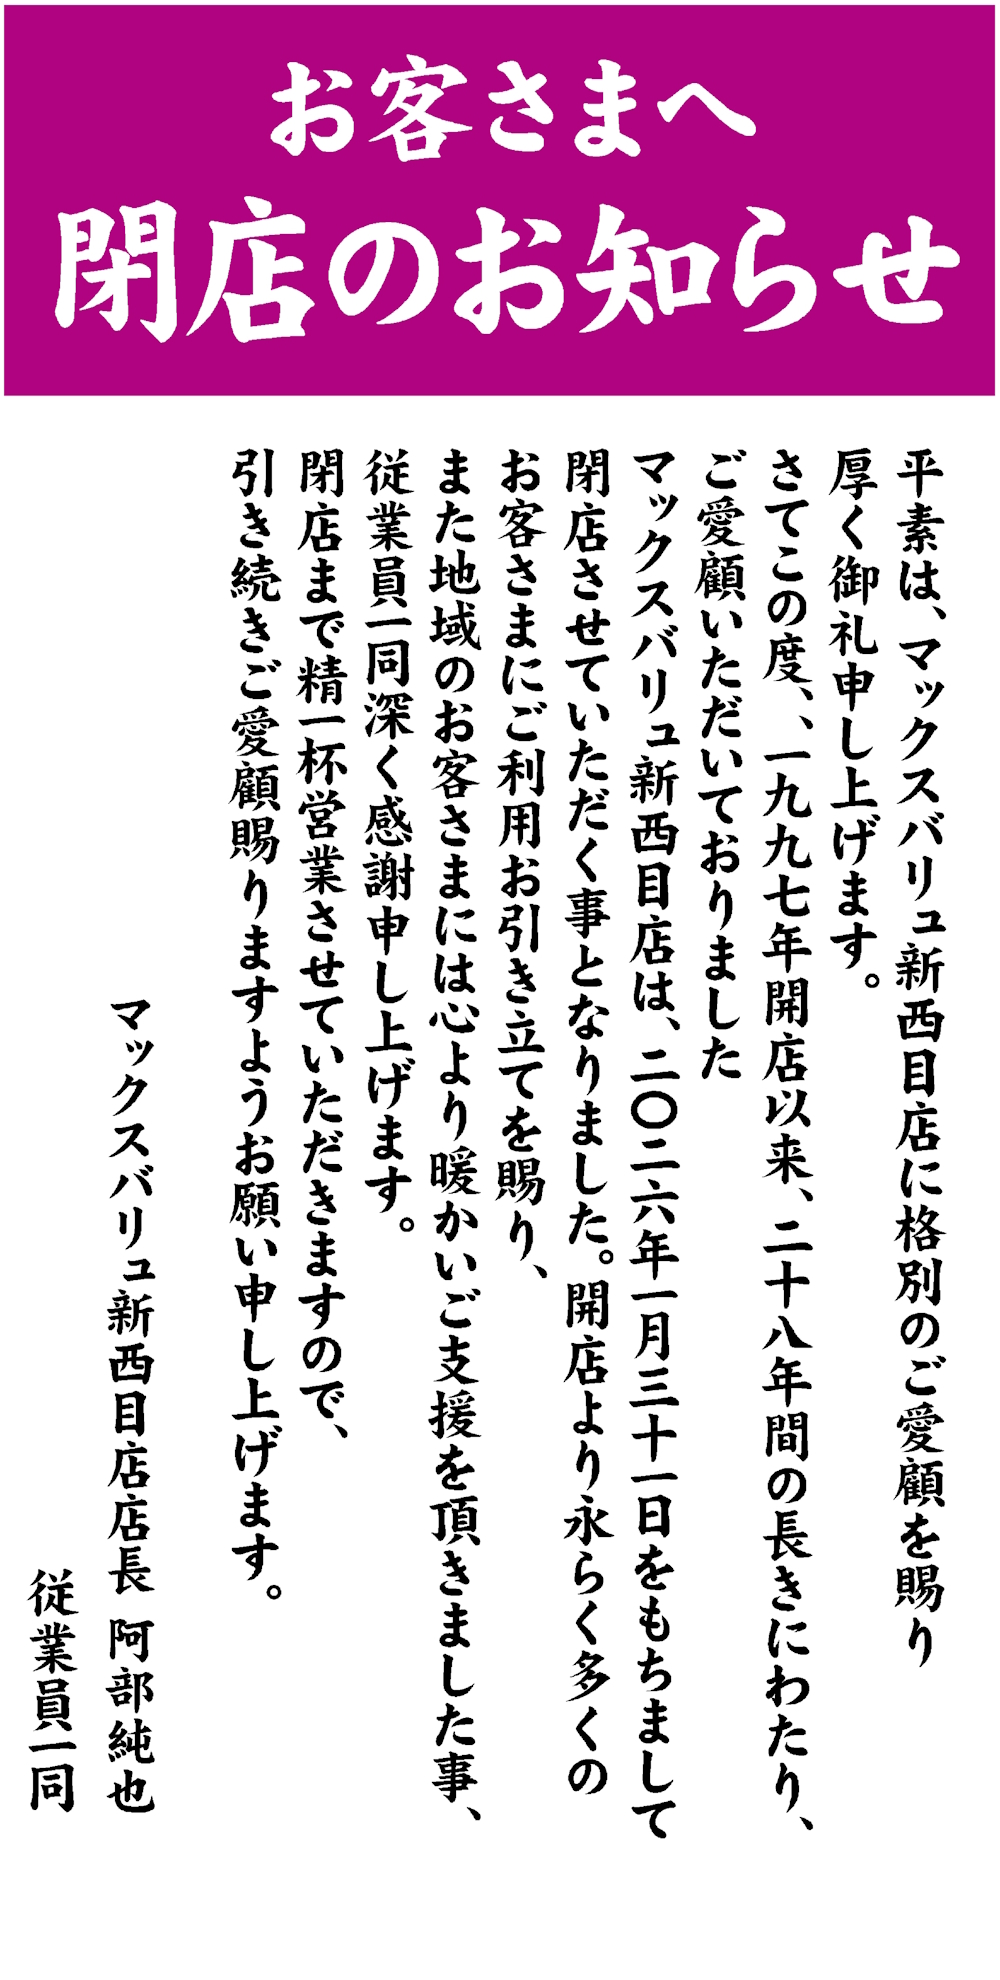 お客さまへ
閉店のお知らせ
平素は、マックスバリュ新西目店に格別のご愛顧を賜り
厚く御礼申し上げます。
さてこの度、、一九九七年開店以来、二十八年間の長きにわたり、
ご愛顧いただいておりました
マックスバリュ新西目店は、二〇二六年一月三十一日をもちまして
閉店させていただく事となりました。開店より永らく多くの
お客さまにご利用お引き立てを賜り、
また地域のお客さまには心より暖かいご支援を頂きました事、
従業員一同深く感謝申し上げます。
閉店まで精一杯営業させていただきますので、
引き続きご愛顧賜りますようお願い申し上げます。
マックスバリュ新西目店店長 阿部純也
従業員一同